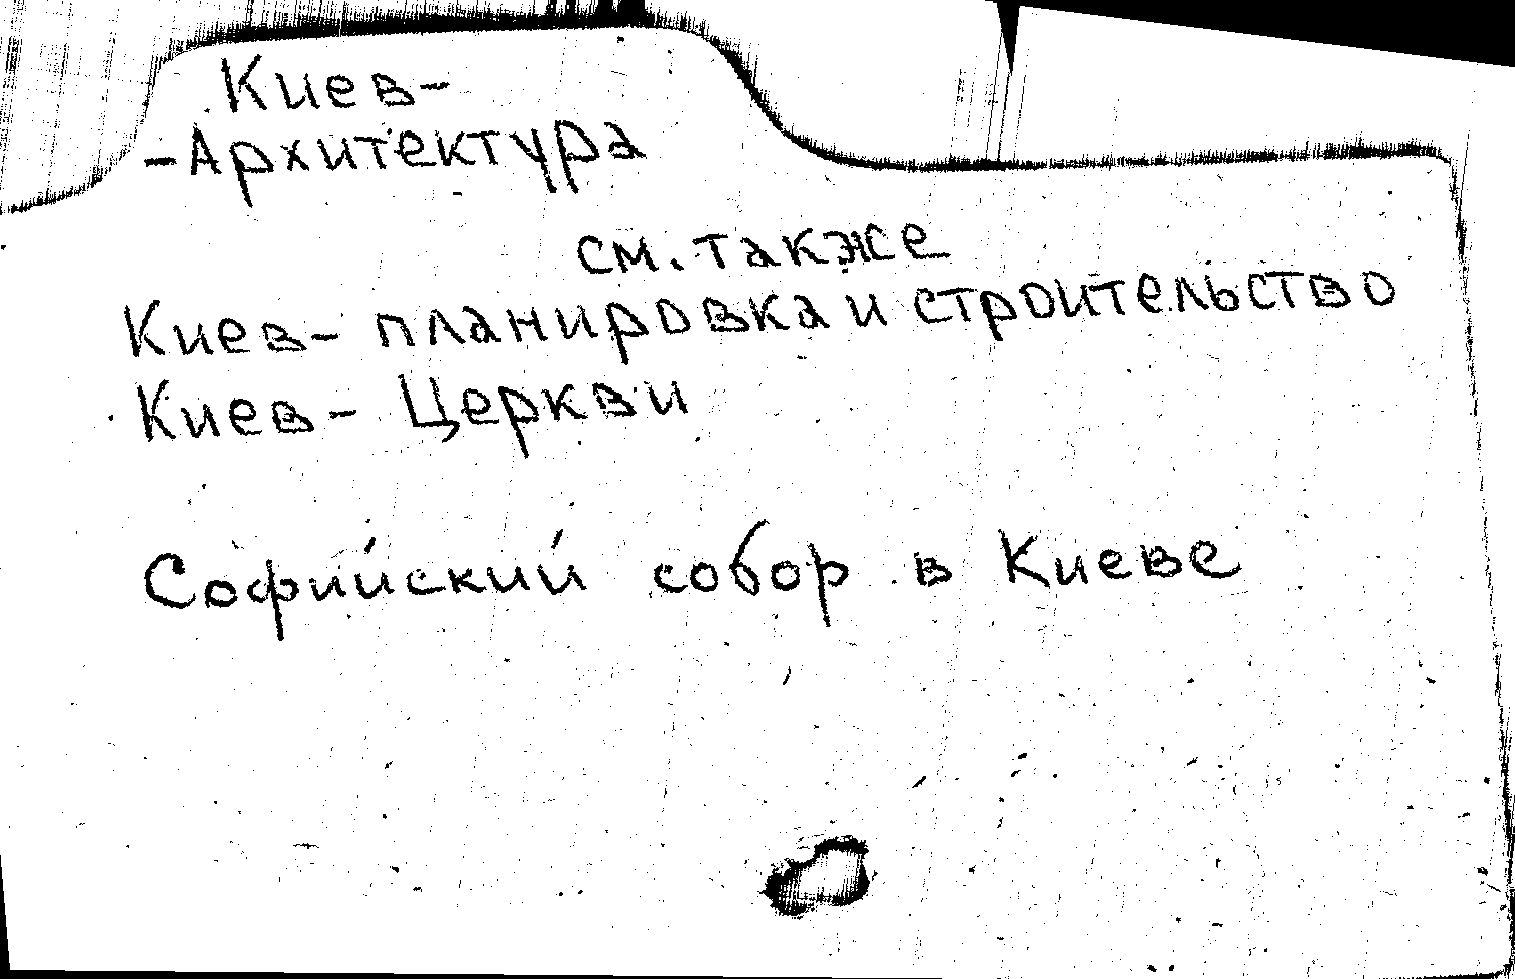 Киев-
-Архитектура
см. также
Киев- планировка и строительство
Киев- Церкви
Софийский собор в Киеве